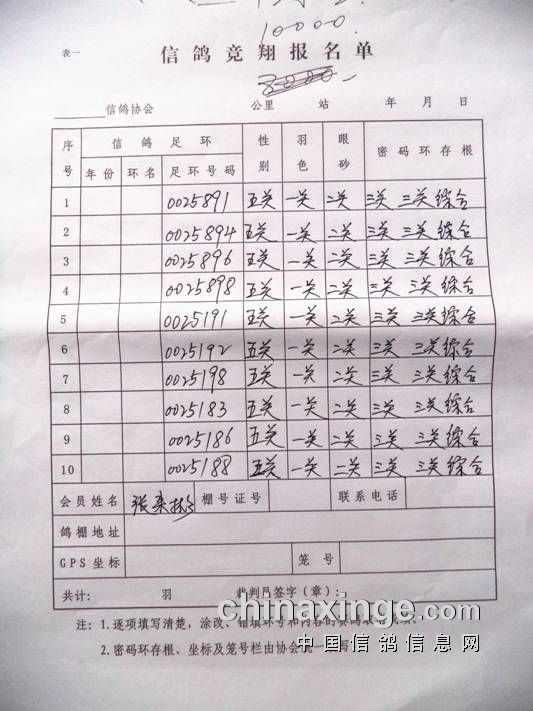 10000.
表一
信鸽竞翔报名单
信鸽协会 公里 站 年 月 日
序号 信鸽足环 性别 羽色 眼砂 密码环存根
年份 环名 足环号码
1 0025891 五关 一关 二关 三关 三关综合
2 0025894 五关 一关 二关 三关 三关综合
3 0025896 五关 一关 二关 三关 三关综合
4 0025898 五关 一关 二关 三关 三关综合
5 0025191 五关 一关 二关 三关 三关综合
6 0025192 五关 一关 二关 三关 三关综合
7 0025198 五关 一关 二关 三关 三关综合
8 0025183 五关 一关 二关 三关 三关综合
9 0025186 五关 一关 二关 三关 三关综合
10 0025188 五关 一关 二关 三关 三关综合
会员姓名 张 棚号证号 联系电话
鸽棚地址
GPS坐标 笼号
共计： 羽 裁判员签字（章）：
chinaxinge.com
注：1.逐项填写清楚，涂改、错填环号和内容的
中国信鸽信息网
2.密码环存根、坐标及笼号栏由协会统一填写